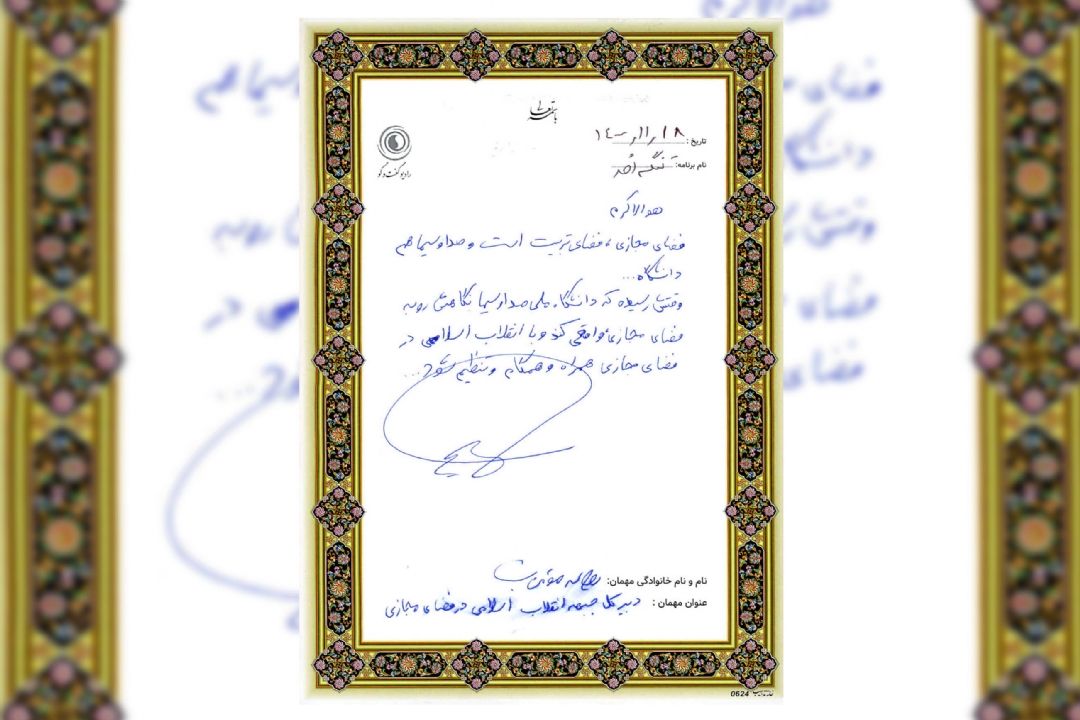 باسمه تعالی
رادیو گفت و گو
تاریخ: ۱۴۰۰/۱۱/۱۸
نام برنامه: تنگه اُحد
هوالاکرم
فضای مجازی، فضای تربیت است و صداوسیما هم
دانشگاه...
وقتش رسیده که دانشگاه ملی صداوسیما نگاهش رو به
فضای مجازی واقعی کند و با انقلاب اسلامی در
فضای مجازی همراه و همگام و تنظیم شود...
نام و نام خانوادگی مهمان: روح اله
عنوان مهمان: دبیر کل جبهه انقلاب اسلامی در فضای مجازی
0624